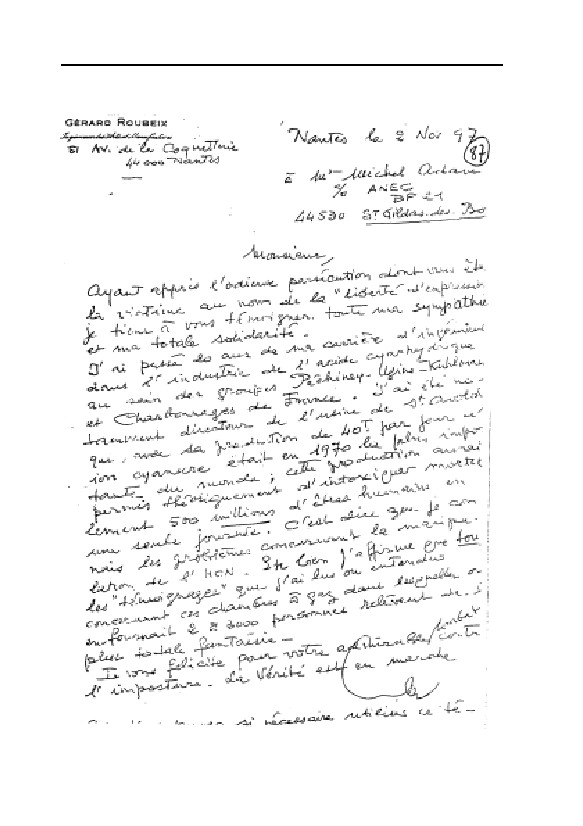 GÉRARD ROUBEIX
51 AV. de la Coquetterie
44000 Nantes
Nantes le 2 Nov 97
87
à Michel
c/o ANEC
BP 21
44530 St Gildas-des-Bo
Monsieur,
Ayant appris l'odieuse persécution dont vous êtes
la victime au nom de la "liberté" d'expression
je tiens à vous témoigner toute ma sympathie
et ma totale solidarité.
J'ai passé 10 ans de ma carrière d'ingénieur
dans l'industrie de l'acide cyanhydrique
au sein des groupes Péchiney-Ugine-Kuhlmann
et Charbonnages de France. J'ai été no-
tamment directeur de l'usine de St Avold
qui, avec sa production de 40T par jour d'
ion cyanure était en 1970 la plus impor
tante du monde ; cette production aurait
permis théoriquement d'intoxiquer mortel
lement 500 millions d'êtres humains en
une seule journée. C'est dire que je con
nais les problèmes concernant la
lation de l'HCN. Eh bien j'affirme que tous
les "témoignages" que j'ai lus ou entendus
concernant ces chambres à gaz dans lesquelles o-
enfournait 2 à 3000 personnes relèvent de l
plus totale fantaisie.
Je vous félicite pour votre combat contre
l'imposture. La Vérité est en marche
si nécessaire utiliser ce té-